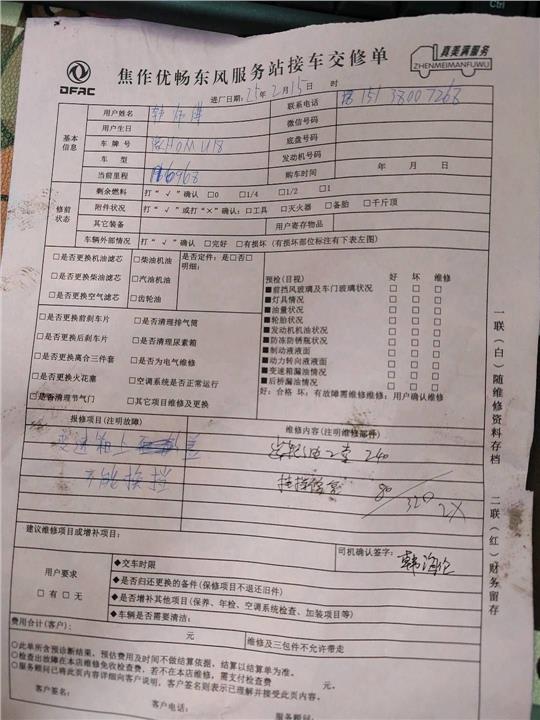 DFAC
焦作优畅东风服务站接车交修单
真美满服务
ZHENMEIMANFUWU
进厂日期：25年2月15日 时
基本信息
用户姓名
联系电话 151 3800 7268
用户生日
微信号码
车 牌 号
底盘号码
车 型
发动机号码
当前里程
购车时间 年 月 日
修前状态
剩余燃料 打“√”确认 □0 □1/4 □1/2 □1
附件状况 打“√”或打“×”确认：□工具 □灭火器 □备胎 □千斤顶
其它装备 用户寄存物品
车辆外部情况 打“√”确认 □完好 □有损坏（有损坏部位标注有下表左图）
□是否更换机油滤芯 □柴油机油 是否定件：是□否□
明细：
□是否更换柴油滤芯 □汽油机油
□是否更换空气滤芯 □齿轮油
□是否更换前刹车片 □是否清理排气筒
□是否更换后刹车片 □是否清理尿素箱
□是否更换离合三件套 □是否为电气维修
□是否更换火花塞 □空调系统是否正常运行
□是否清理节气门 □其它项目维修及更换
预检（目视） 好 坏 维修
■前挡风玻璃及车门玻璃状况 □ □ □
■灯具情况 □ □ □
■油量状况 □ □ □
■轮胎状况 □ □ □
■发动机机油状况 □ □ □
■防冻防锈瓶状况 □ □ □
■制动液液面 □ □ □
■动力转向液液面 □ □ □
■变速箱漏油情况 □ □ □
■后桥漏油情况 □ □ □
好：合格 坏：有故障需维修维修：用户确认维修
报修项目（注明故障）
维修内容（注明维修部件）
变速箱上盖
240
不能换挡
80
320
建议维修项目或增补项目：
司机确认签字：
用户要求
□有 □无
◆交车时限
◆是否归还更换的备件（保修项目不退还旧件）
◆是否增补其他项目（保养、年检、空调系统检查、加装项目等）
◆车辆是否需要清洁：
费用合计（客户）： 元 维修及三包件不允许带走
○此单所含预诊断结果、预估费用及时间不做结算依据，结算以结算单为准。
○检查出故障在本店维修免收检查费，若不在本店维修，需支付检查费 元。
○服务顾问已将此页内容详细向客户说明，客户签名则表示已理解并接受此页内容。
客户签名： 客户电话： 服务顾问：
一联（白）随维修资料存档 二联（红）财务留存